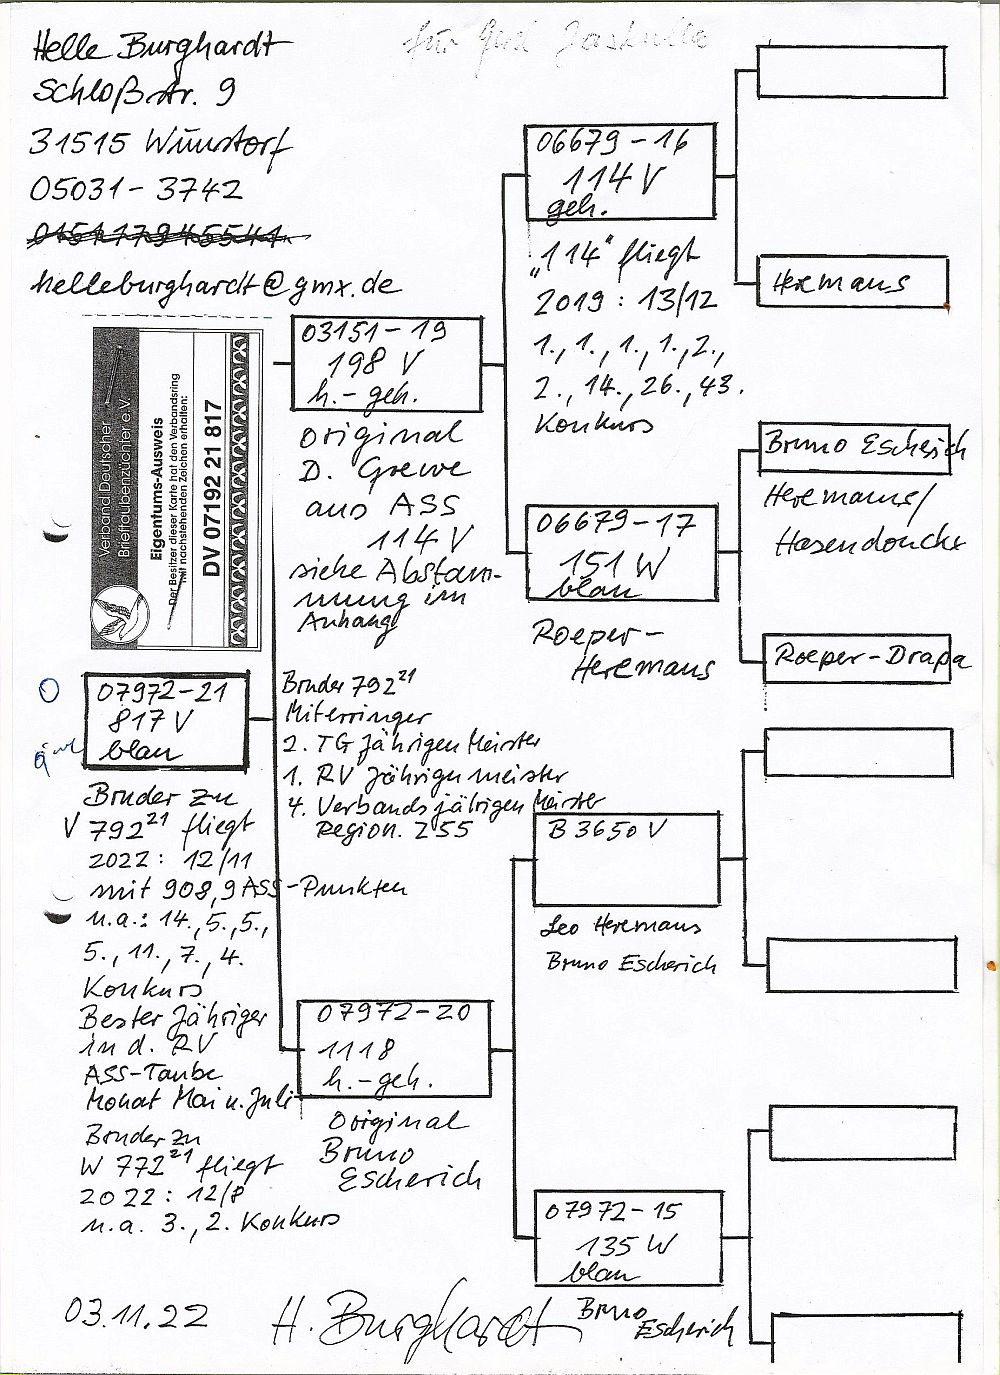 Helle Burghardt
Schloßstr. 9
31515 Wunstorf
05031-3742
helleburghardt@gmx.de
für
Verband Deutscher
Brieftaubenzüchter e.V.
Eigentums-Ausweis
Der Besitzer dieser Karte hat den Verbandsring
mit nachstehenden Zeichen erhalten:
DV 07192 21 817
07972-21
817 V
blau
Bruder zu
V 792²¹ fliegt
2022: 12/11
mit 908,9 ASS-Punkten
u.a.: 14., 5., 5.,
5., 11., 7., 4.
Konkurs
Bester Jähriger
in d. RV
ASS-Taube
Monat Mai u. Juli
Bruder zu
W 772²¹ fliegt
2022: 12/8
u.a. 3., 2. Konkurs
03.11.22
H. Burghardt
03151-19
198 V
h.-geh.
Original
D. Grewe
aus ASS
114 V
siehe Abstam-
mung im
Anhang
Bruder 792²¹
Miterringer
2. TG Jährigen Meister
1. RV Jährigenmeister
4. Verbandsjährigen Meister
Region. 255
07972-20
1118
h.-geh.
Original
Bruno
Escherich
06679-16
114 V
geh.
"114" fliegt
2019: 13/12
1., 1., 1., 1., 2.,
2., 14., 26., 43.
Konkurs
06679-17
151 W
blau
Roeper-
Heremans
B 3650 V
Leo Heremans
Bruno Escherich
07972-15
135 W
blau
Bruno
Escherich
Heremans
Bruno Escherich
Heremans/
Hasendonckx
Roeper-Drapa